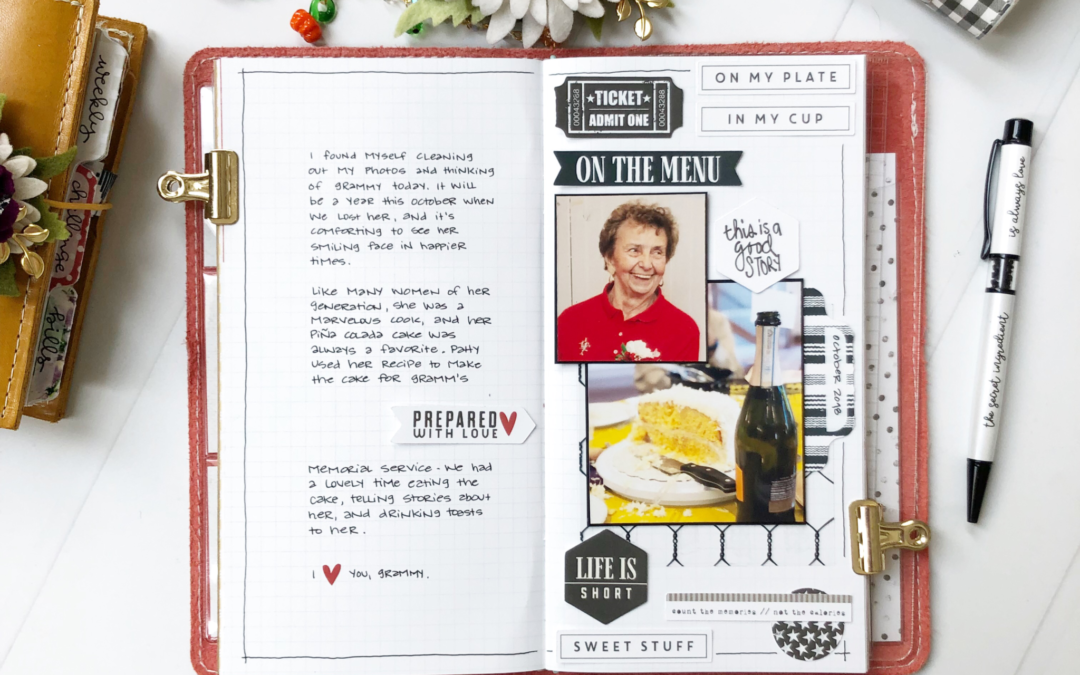 weekly
challenge
daily
I found myself cleaning
out my photos and thinking
of grammy today. It will
be a year this october when
we lost her, and it's
comforting to see her
smiling face in happier
times.
Like many women of her
generation, she was a
marvelous cook, and her
piña colada cake was
always a favorite. Patty
used her recipe to make
the cake for gramm's
PREPARED
WITH LOVE
Memorial service. We had
a lovely time eating the
cake, telling stories about
her, and drinking toasts
to her.
I ♥ you, grammy.
TICKET
ADMIT ONE
00043268
00043268
ON MY PLATE
IN MY CUP
ON THE MENU
this is a
good
STORY
OCTOBER 2018
LIFE IS
SHORT
count the memories // not the calories
SWEET STUFF
is always love
the secret ingredient